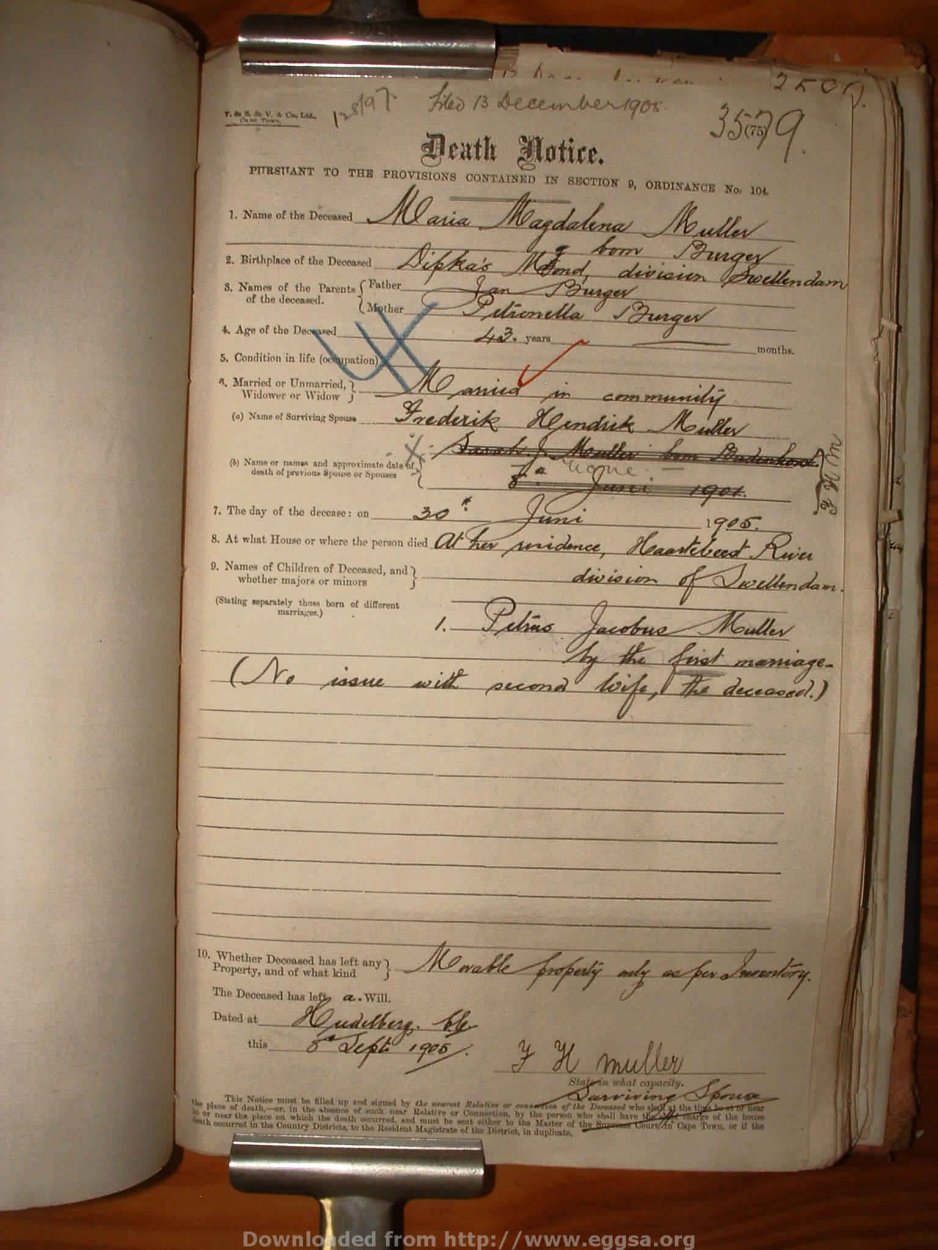 2501.
Filed 13 December 1905
T. de S. de V. & Co., Ltd.,
Cape Town.
3579.
(75)
Death Notice.
PURSUANT TO THE PROVISIONS CONTAINED IN SECTION 9, ORDINANCE No. 104.
1. Name of the Deceased Maria Magdalena Muller
born Burger
2. Birthplace of the Deceased Dipka's Mond, division Swellendam
3. Names of the Parents of the deceased. { Father Jan Burger
Mother Petronella Burger
4. Age of the Deceased 43. years months.
5. Condition in life (occupation)
6. Married or Unmarried, Widower or Widow } Married in community
(a) Name of Surviving Spouse Frederik Hendrick Muller
Sarah J. Muller born Badenhorst
(b) Name or names and approximate date of death of previous Spouse or Spouses } none
8e Juni 1901.
F H M
7. The day of the decease: on 30e Juni 1905.
8. At what House or where the person died At her residence, Haartebeest River
division of Swellendam.
9. Names of Children of Deceased, and whether majors or minors }
(Stating separately those born of different marriages.)
1. Petrus Jacobus Muller
by the first marriage-
(No issue with second wife, the deceased.)
10. Whether Deceased has left any Property, and of what kind } Movable property only as per Inventory.
The Deceased has left a. Will.
Dated at Heidelberg.
this 8e Sept. 1905.
F H Muller
State in what capacity.
Surviving Spouse
This Notice must be filled up and signed by the nearest Relative or connection of the Deceased who shall at the time be at or near
the place of death,—or, in the absence of such near Relative or Connection, by the person who shall have the charge of the house
in or near the place on which the death occurred, and must be sent either to the Master of the Supreme Court in Cape Town, or if the
death occurred in the Country Districts, to the Resident Magistrate of the District, in duplicate.
Downloaded from http://www.eggsa.org